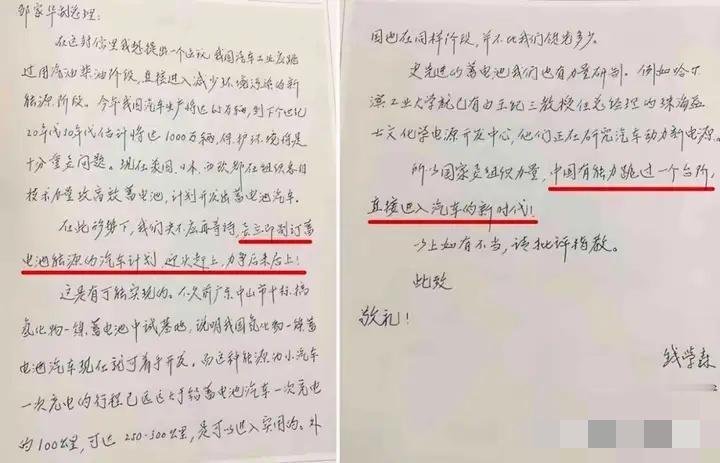 邹家华副总理：
在这封信里我想提出一个建议，我国汽车工业应跳
过用汽油柴油阶段，直接进入减少环境污染的新
能源阶段。今年我国汽车生产将达65万辆，到下个世纪
20年代30年代估计将达1000万辆，保护环境将是
十分重要问题。现在美国、日本、西欧都在组织各自
技术力量攻高效蓄电池，计划开发出蓄电池汽车。
在此形势下，我们决不应再等待，要立即制订蓄
电池能源的汽车计划，迎头赶上，力争后来居上！
这是有可能实现的。不久前广东中山市中标，搞
氢化物—镍蓄电池中试基地，说明我国氢化物—镍蓄
电池汽车现在就可着手开发。而这种能源为小汽车
一次充电的行程已远远大于铅蓄电池汽车一次充电
的100公里，可达250-300公里，是可以进入实用的。外
国也在同样阶段，并不比我们领先多少。
更先进的蓄电池我们也有力量研制。例如哈尔
滨工业大学就已有由王纪三教授任总经理的珠海益
士文化学电源开发中心，他们正在研究汽车动力新电源。
所以国家要组织力量，中国有能力跳过一个台阶，
直接进入汽车的新时代！
以上如有不当，请批评指教。
此致
敬礼！
钱学森